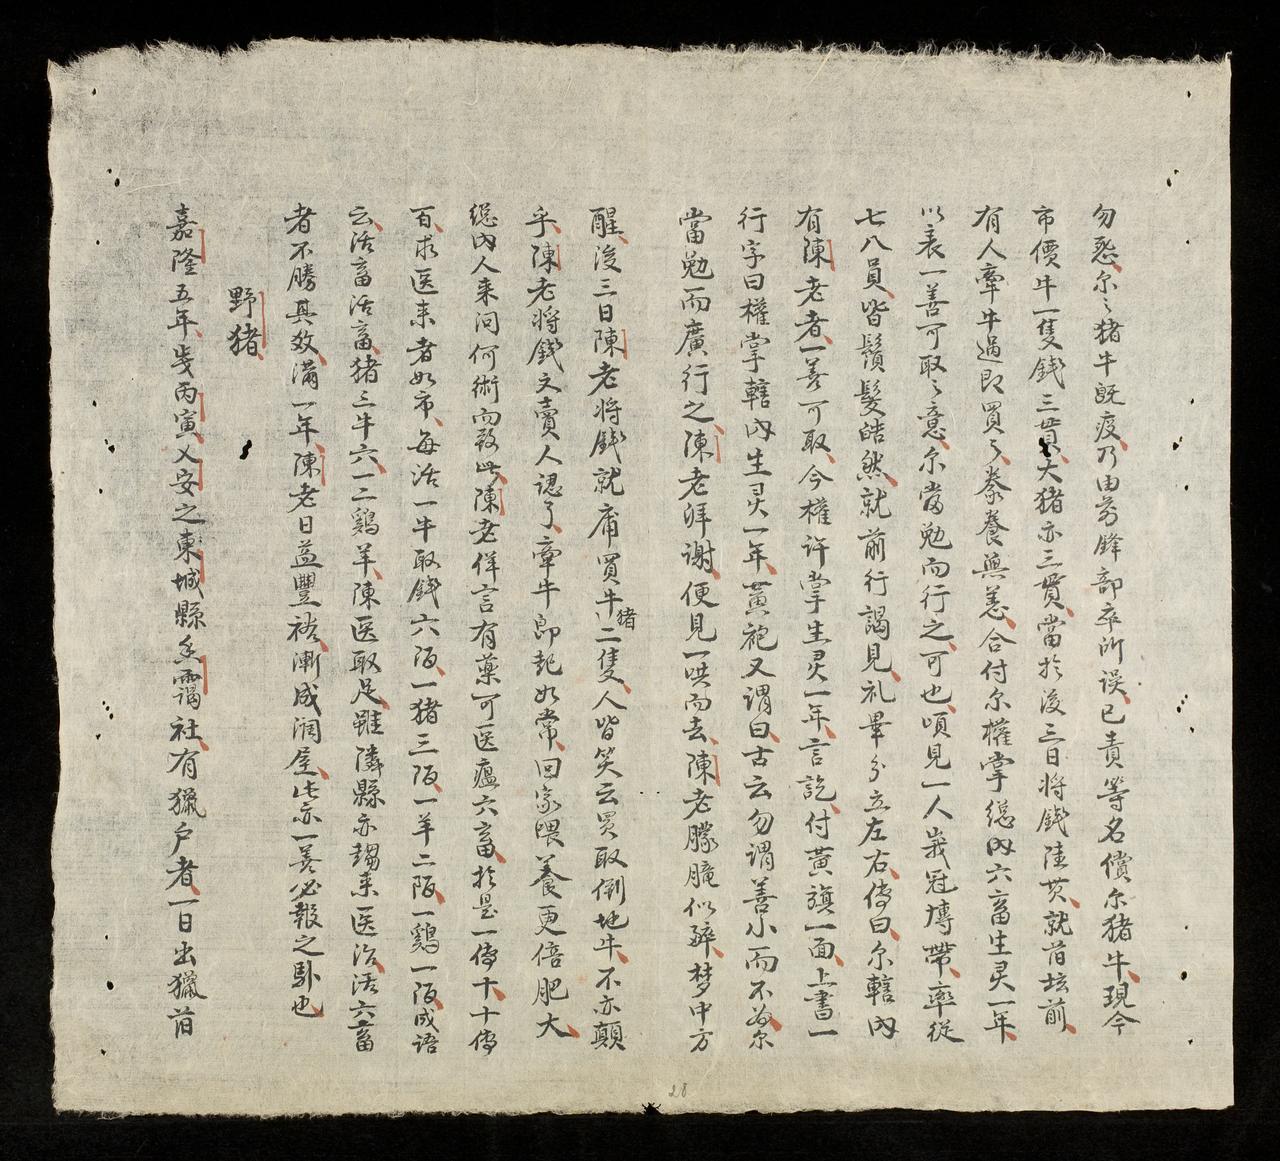 勿愁尔々猪牛既疫乃由前鋒部卒所誤已責等名償尔猪牛現今
市價牛一隻錢三貫大猪亦三貫當於後三日将錢陸貫就省坛前
有人牽牛過即買之豢養無恙合付尔權掌總内六畜生灵一年
以表一善可取之意尔當勉而行之可也頃見一人峩冠博帶率従
七八員皆鬚髮皓然就前行謁見礼畢分立左右傳曰尔轄内
有陳老者一善可取今權许掌生灵一年言訖付黄旗一面上書一
行字曰權掌轄内生灵一年黄袍又谓曰古云勿谓善小而不為尔
當勉而廣行之陳老拜謝便見一哄而去陳老朦朧似醉梦中方
醒後三日陳老将錢就庯買牛猪二隻人皆笑云買取倒地牛不亦顛
乎陳老将錢文賣人認了牽牛即起如常回家喂養更倍肥大
總内人来问何術而致此陳老佯言有藥可医瘟六畜於是一傳十十傳
百求医来者如市每活一牛取錢六陌一猪三陌一羊二陌一鷄一陌成语
云活畜活畜猪三牛六一二鷄羊陳医取足雖隣縣亦趨来医治活六畜
者不勝其效满一年陳老日益豐裕漸成潤屋此亦一善必報之馴也
野猪
嘉隆五年歲丙寅乂安之東城縣 靄社有獵户者一日出獵前
28